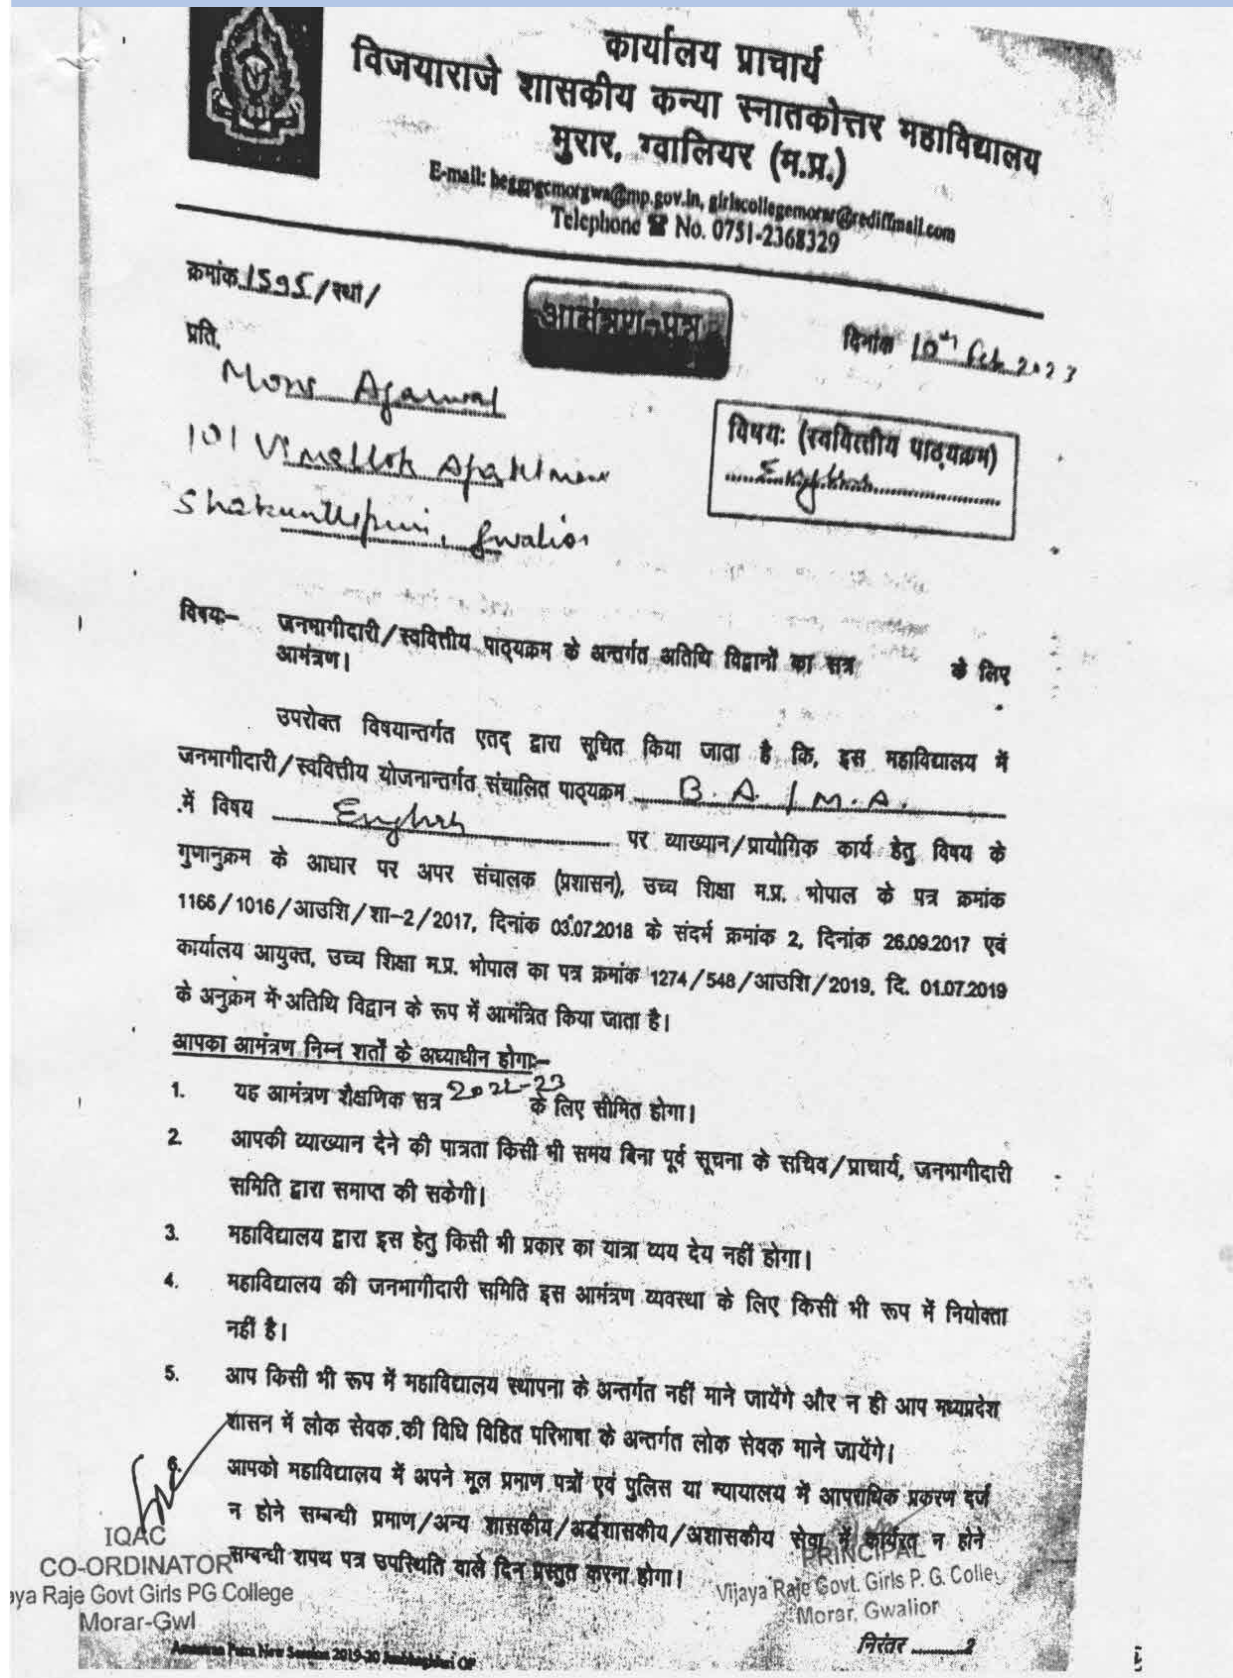 कार्यालय प्राचार्य
विजयाराजे शासकीय कन्या स्नातकोत्तर महाविद्यालय
मुरार, ग्वालियर (म.प्र.)
E-mail: heggpgcmorgwa@mp.gov.in, girlscollegemorar@rediffmail.com
Telephone ☎ No. 0751-2368329
क्रमांक 1595/स्था/
आमंत्रण-पत्र
दिनांक 10th Feb 2023
प्रति,
Agarwal
101 Vimallok
Gwalior
विषय: (स्ववित्तीय पाठ्यक्रम)
English
विषयः– जनभागीदारी/स्ववित्तीय पाठ्यक्रम के अन्तर्गत अतिथि विद्वानों का सत्र के लिए
आमंत्रण।
उपरोक्त विषयान्तर्गत एतद् द्वारा सूचित किया जाता है कि, इस महाविद्यालय में
जनभागीदारी/स्ववित्तीय योजनान्तर्गत संचालित पाठ्यक्रम B.A. / M.A.
में विषय English पर व्याख्यान/प्रायोगिक कार्य हेतु विषय के
गुणानुक्रम के आधार पर अपर संचालक (प्रशासन), उच्च शिक्षा म.प्र. भोपाल के पत्र क्रमांक
1166/1016/आउशि/शा–2/2017, दिनांक 03.07.2018 के संदर्भ क्रमांक 2, दिनांक 26.09.2017 एवं
कार्यालय आयुक्त, उच्च शिक्षा म.प्र. भोपाल का पत्र क्रमांक 1274/548/आउशि/2019, दि. 01.07.2019
के अनुक्रम में अतिथि विद्वान के रूप में आमंत्रित किया जाता है।
आपका आमंत्रण निम्न शर्तों के अध्याधीन होगाः–
1. यह आमंत्रण शैक्षणिक सत्र 2022-23 के लिए सीमित होगा।
2. आपकी व्याख्यान देने की पात्रता किसी भी समय बिना पूर्व सूचना के सचिव/प्राचार्य, जनभागीदारी
समिति द्वारा समाप्त की सकेगी।
3. महाविद्यालय द्वारा इस हेतु किसी भी प्रकार का यात्रा व्यय देय नहीं होगा।
4. महाविद्यालय की जनभागीदारी समिति इस आमंत्रण व्यवस्था के लिए किसी भी रूप में नियोक्ता
नहीं है।
5. आप किसी भी रूप में महाविद्यालय स्थापना के अन्तर्गत नहीं माने जायेंगे और न ही आप मध्यप्रदेश
शासन में लोक सेवक की विधि विहित परिभाषा के अन्तर्गत लोक सेवक माने जायेंगे।
6. आपको महाविद्यालय में अपने मूल प्रमाण पत्रों एवं पुलिस या न्यायालय में आपराधिक प्रकरण दर्ज
न होने सम्बन्धी प्रमाण/अन्य शासकीय/अर्द्धशासकीय/अशासकीय सेवा में कार्यरत न होने
सम्बन्धी शपथ पत्र उपस्थिति वाले दिन प्रस्तुत करना होगा।
IQAC
CO-ORDINATOR
aya Raje Govt Girls PG College
Morar-Gwl
PRINCIPAL
Vijaya Raje Govt. Girls P. G. Colle
Morar, Gwalior
New Session 2019-20
निरंतर ..........2